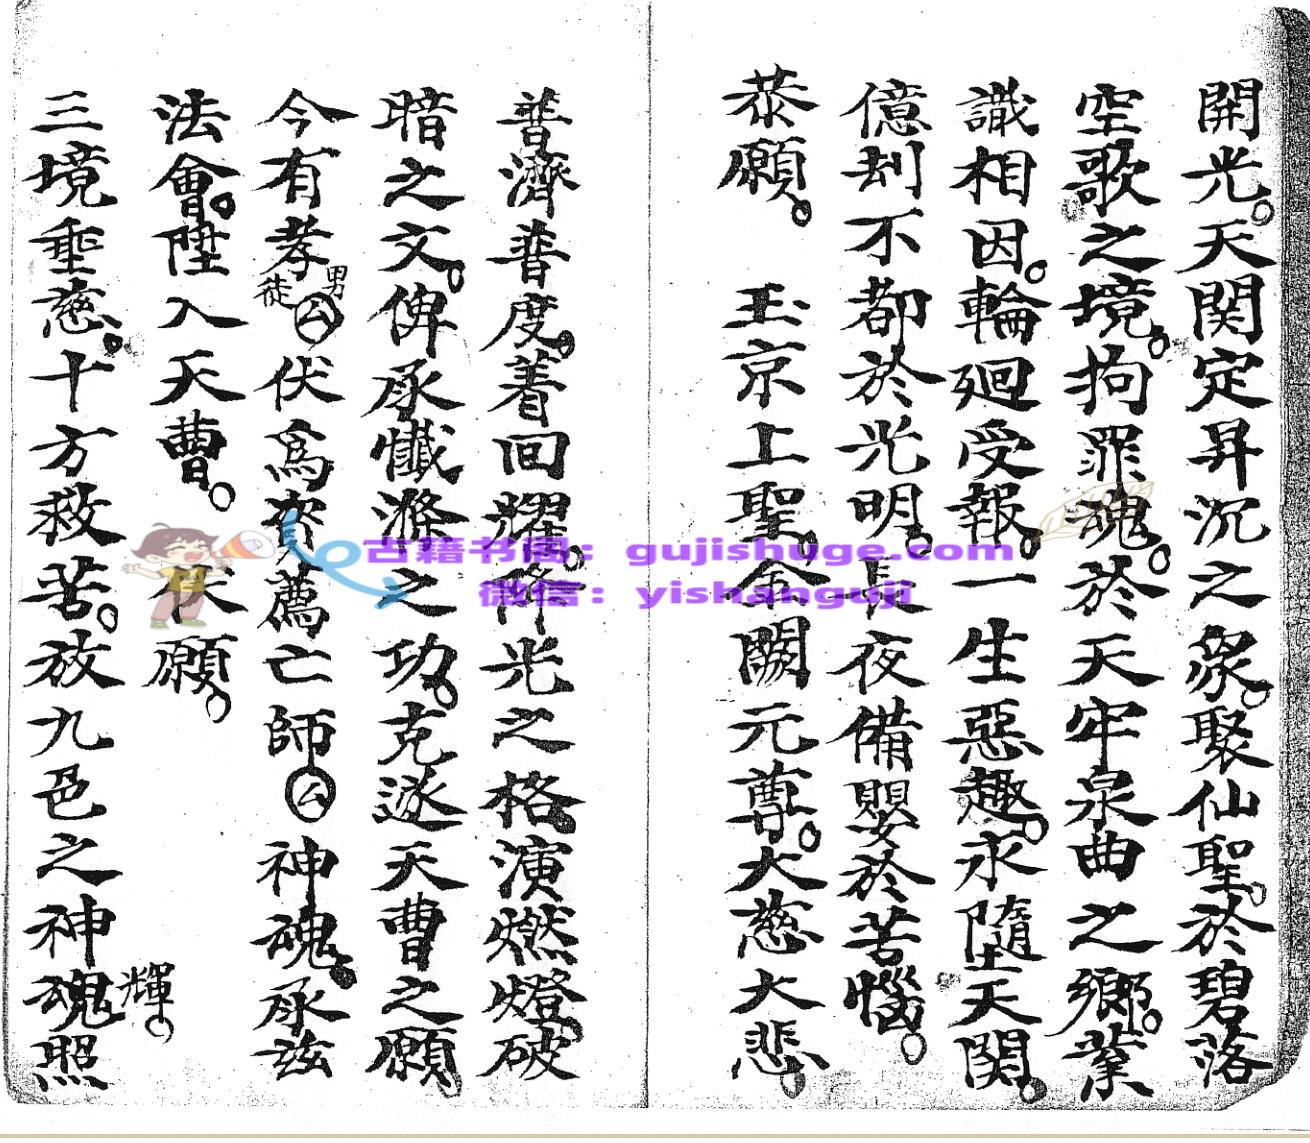 開光。天関定昇沉之衆。聚仙聖。於碧落
空歌之境。拘罪魂。於天牢泉曲之鄉。業
識相因。輪迴受報。一生惡趣。永墮天関。
億刦不都於光明。長夜備嬰於苦惱。
恭願。 玉京上聖。金闕元尊。大慈大悲
普濟普度。着回耀。降光之格演燃燈破
暗之文。俾承懺滌之功。克遂天曹之願
今有孝男徒公伏為資薦亡師公神魂承兹
法會。陞入天曹。伏願。
三境垂慈。十方救苦。放九色之神魂照
輝。
古籍书阁：gujishuge.com
微信：yishanguji